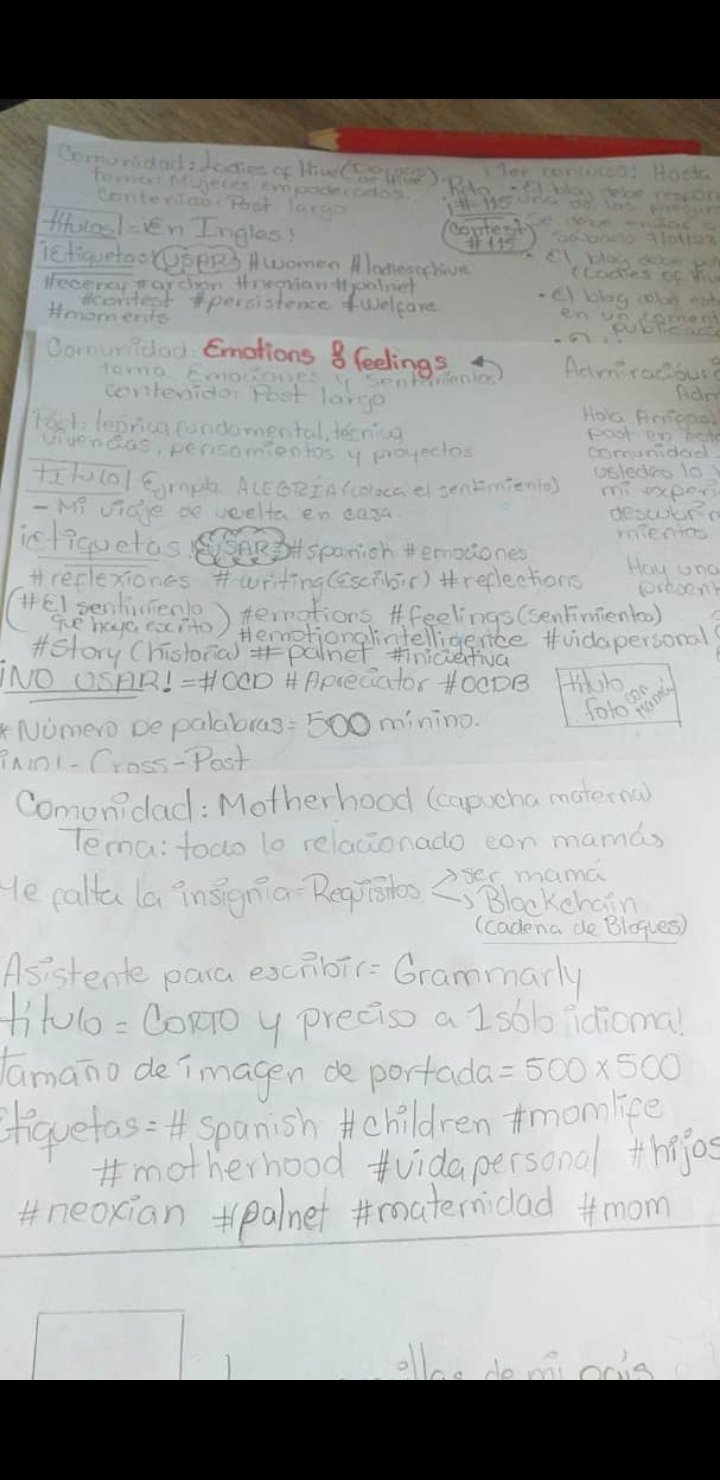 Comunidad: Ladies of Hive
tema: Mujeres empoderadas
contenido: Post largo
títulos = ¡En Ingles!
¡Etiquetas! (USAR) #women #ladiesofhive
#ecency #archon #neoxian #palnet
#contest #persistence #welfare
#moments
¡1er concurso! Hasta
Reto
¡#115
(contest
#115)
• El blog debe
una de las
Se debe enviar
Sabado
• El blog debe
(Ladies of
• El blog debe
en un
Comunidad: Emotions & feelings
tema: Emociones y sentimientos
contenido: Post largo
Post: teorica, fundamental, técnica
vivencias, pensamientos y proyectos
título Ejemplo ALEGRÍA (coloca el sentimiento)
- Mi viaje de vuelta en casa.
¡etiquetas (USAR) #spanish #emociones
#reflexiones #writing (Escribir) #reflections
(#El sentimiento
que haya escrito) #emotions #feelings (sentimientos)
#emotionalintelligence #vidapersonal
#Story (historia) #palnet #iniciativa
¡NO USAR! = #OCD #Apreciator #OCDB
título
foto con mamá
* Número De palabras = 500 mínino.
Cross-Post
Admiración
Hola
post en
comunidad
ustedes lo
mi
mientos
Hay una
Comunidad: Motherhood (capucha materna)
Tema: todo lo relacionado con mamás
Me falta la insignia = Requisitos
ser mamá
Blockchain
(cadena de Bloques)
Asistente para escribir = Grammarly
título = CORTO y preciso a 1 sólo idioma!
Tamaño de imagen de portada = 500 x 500
Etiquetas = #spanish #children #momlife
#motherhood #vidapersonal #hijos
#neoxian #palnet #maternidad #mom
de mi país